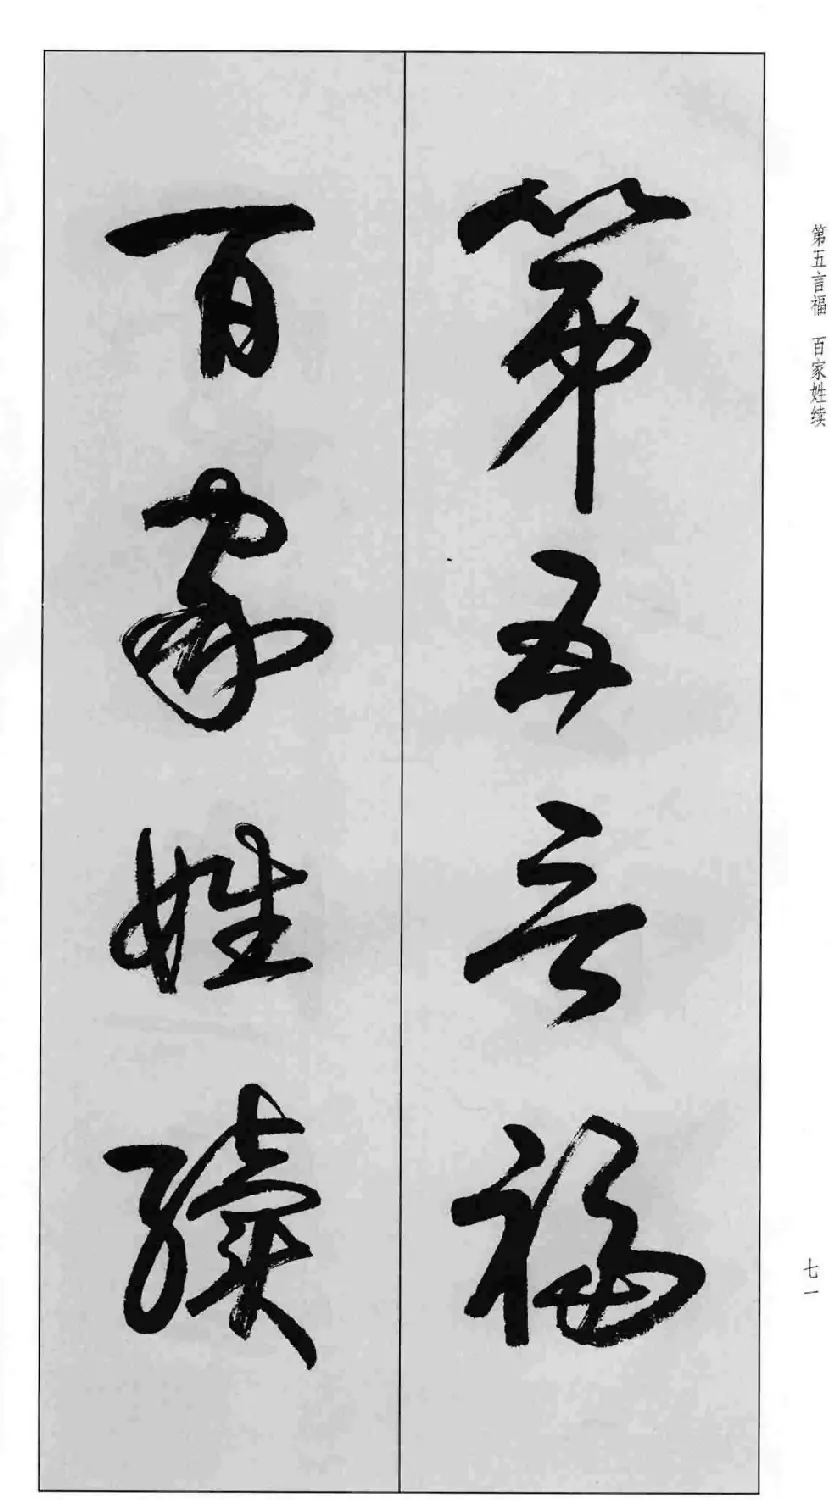 第五言福 百家姓续
第五言福
百家姓續
七一